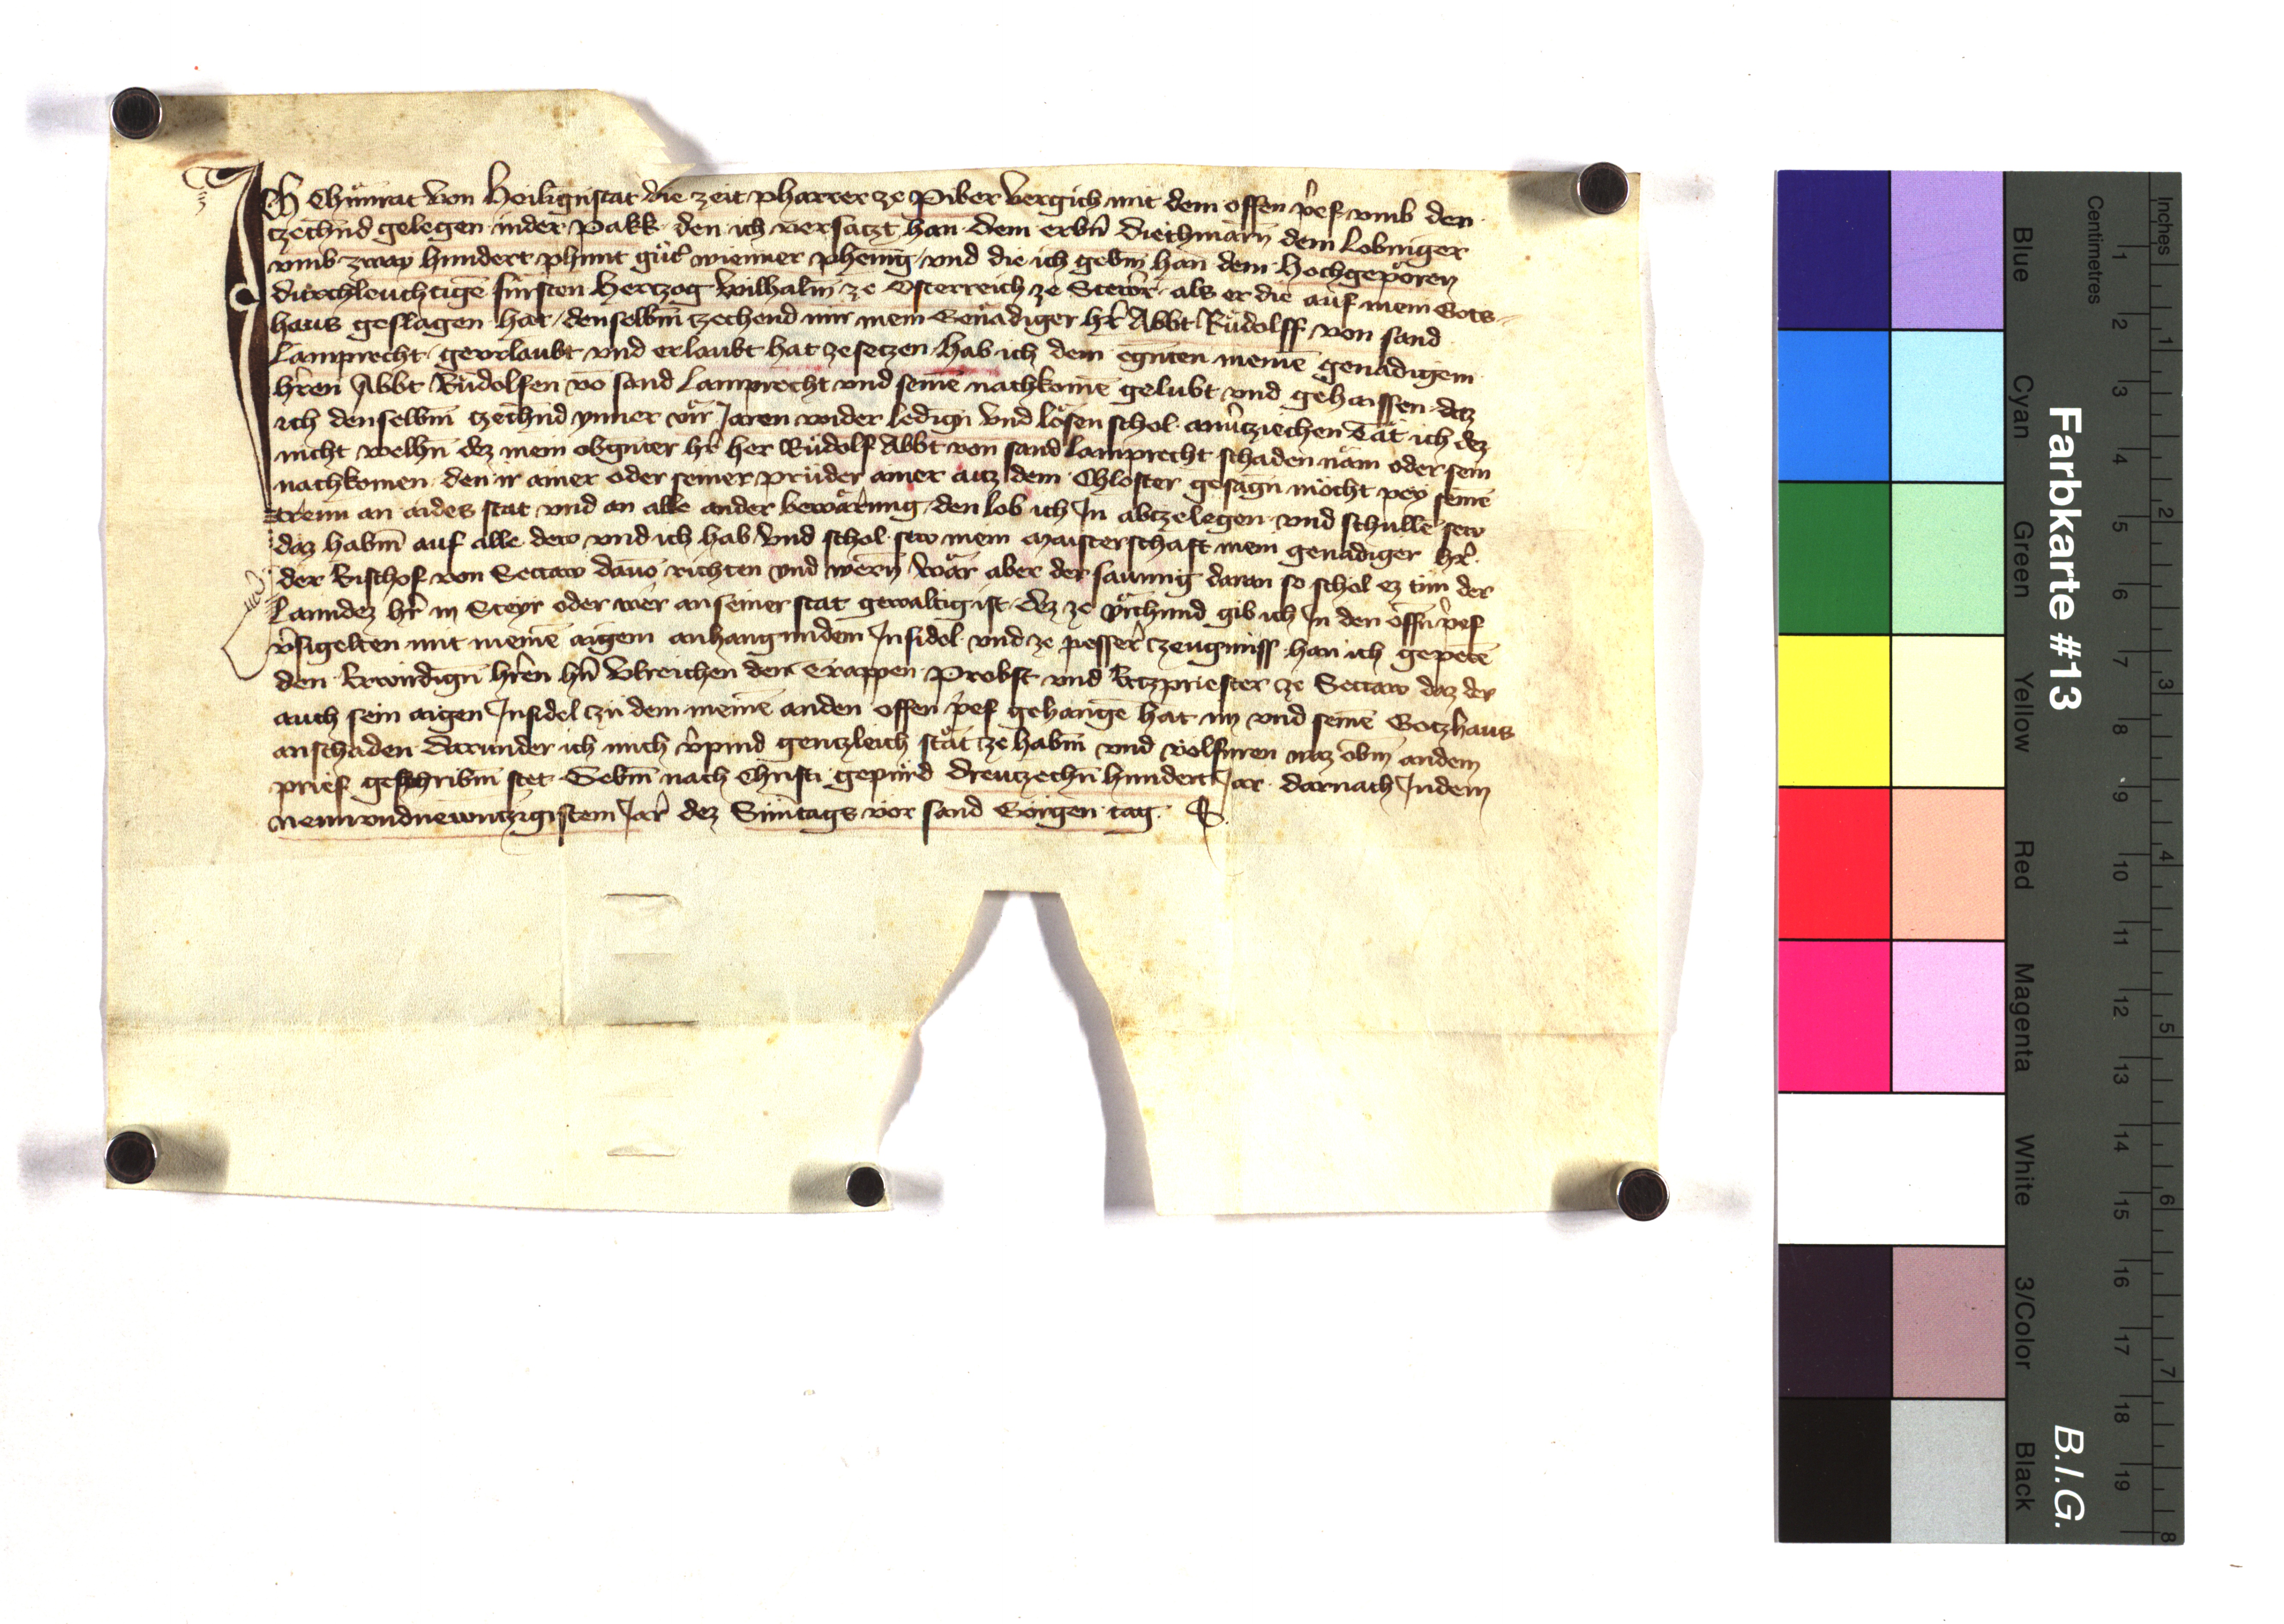 Ich Chunrat von Heiligenstat die zeit pharrer ze Piber vergich mit dem offen prief vmb den
tzechnd gelegen in der Pakk den ich versatzt han dem erbn Diethmarn dem Lobniger
vmb zway hundert phunt guter wienner phenig vnd die ich gebm han dem Hochgeporen
durchleuchtigē fürsten Hertzog Wilhalm ze Osterreich ze Steyr als er die auf mein Gots
haus geslagen hat denselbm tzechend mir mein Genadiger hr Abbt Rudolff von sand
Lamprecht geurlaubt vnd erlaubt hat ze setzen hab ich dem egnten meinē genadigem
hren Abbt Rudolfen vō sand Lamprecht vnd seinē nachkomē gelubt vnd gehaissen daz
ich denselbm tzechnd ynner vir Jaren wider ledign vnd lösen schol an vertziechen Tät ich dez
nicht welhn dez mein obgnter hr her Rudolf Abbt von sand Lamprecht schaden näm oder sein
nachkomen den ir ainer oder seiner prüder ainer auz dem Chloster gesagn möcht pey seinē
trewn an aides stat vnd an alle ander bewarung den lob ich In abtzelegen vnd schullē sew
daz habm auf alle dew vnd ich hab vnd schol sew mein maisterschaft mein genadiger hr
der Bischof von Seccaw dauō richten vnd wern wär aber der saumig daran so schol ez tun der
Lanndez hr in Steyr oder wer an seiner stat gewaltig ist dez ze vrchund gib ich In den offn prief
vrsigelten mit meinē aigem anhangundem Insidel vnd ze pesser tzeugniss han ich gepetē
den Erwirdign hren hn Vlreichen den Trappen Probst vnd Ertzpriester ze Seccaw daz der
auch sein aigen Insidel tzu dem meinē an den offen prief gehangē hat im vnd seinē Gotzhaus
an schaden darunder ich mich vpind gentzleich stät ze habm vnd volfuren waz obm an dem
prief geschribm stet Gebm nach Christi gepurd dreutzechn hundert Jar darnach In dem
neun vnd newntzigistem Jar dez Suntags vor sand Görgen tag
Farbkarte #13
B.I.G.
Blue
Cyan
Green
Yellow
Red
Magenta
White
3/Color
Black
Centimetres
1 2 3 4 5 6 7 8 9 10 11 12 13 14 15 16 17 18 19
Inches
1 2 3 4 5 6 7 8